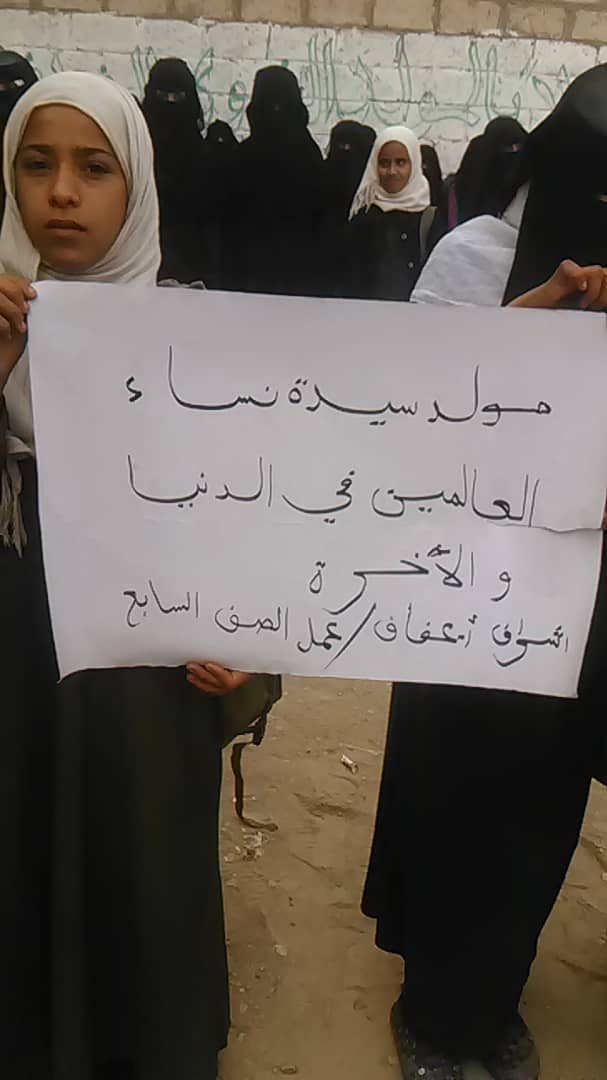 مولد سيدة نساء
العالمين في الدنيا
والأخرة
اشراف أ.عفاف/عمل الصف السابع